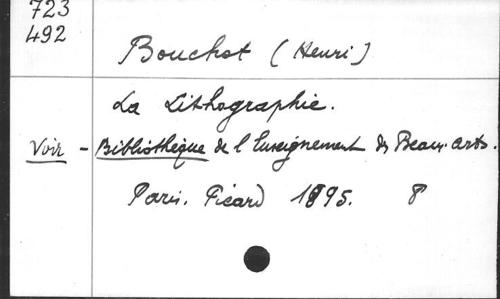 723
492
Bouchot (Henri)
La Lithographie.
Voir - Bibliothèque de l'Enseignement des Beaux-arts.
Paris. Picard 1895. 8